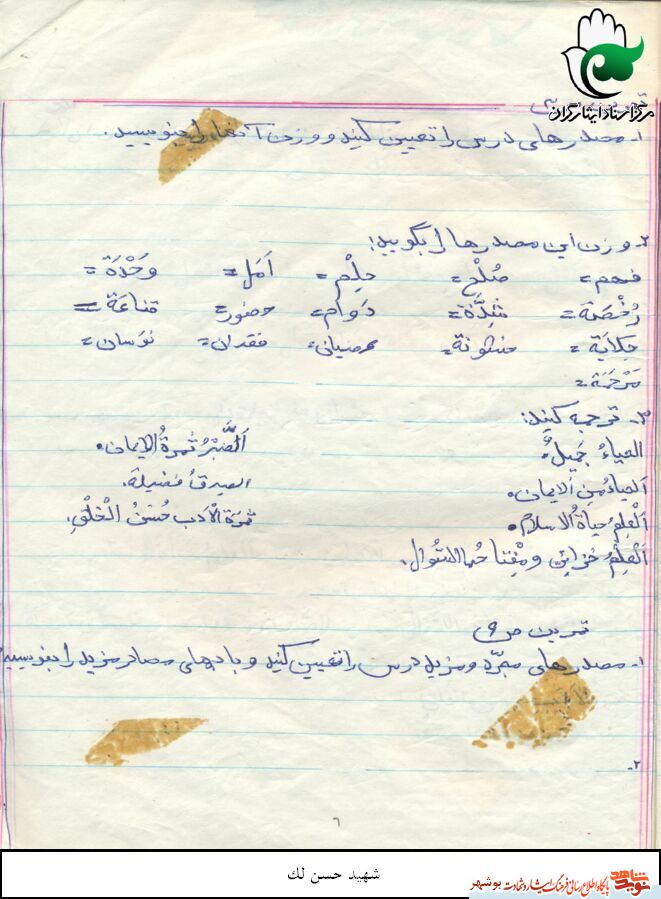 مرکز اسناد ایثارگران
۱- مصدرهای درس را تعیین کنید و وزن آنها را بنویسید.
۲- وزن این مصدرها را بگویید:
فهم= صُلْح= حِلْم= اَمَل= وَحْدَة=
رُخْصَة= شِدَّة= دَوام= حضور= قناعَة=
حِکایَة= خشونة= عصیان= فقدان= نَوَسان=
مَرْحَمَة=
۳- ترجمه کنید:
الحیاءُ جَمیلٌ. اَلصَّبْرُ ثمرةُ الایمان.
اَلحیاءُ مِنَ الایمان. الصدقُ فضیلة.
اَلْعِلمُ حیاةُ الاسلام. ثمرَةُ الْاَدب حُسْنُ الْخُلْقِ.
اَلْعِلْمُ خزائِن و مِفتاحُها السّئوال.
تمرین ص ۹
۱- مصدرهای مجرّد و مزید درس را تعیین کنید و بابهای مصادر مزید را بنویسید
۲-
۶
شهید حسن لك
نوید شاهد
پایگاه اطلاع رسانی فرهنگ ایثار و شهادت بوشهر